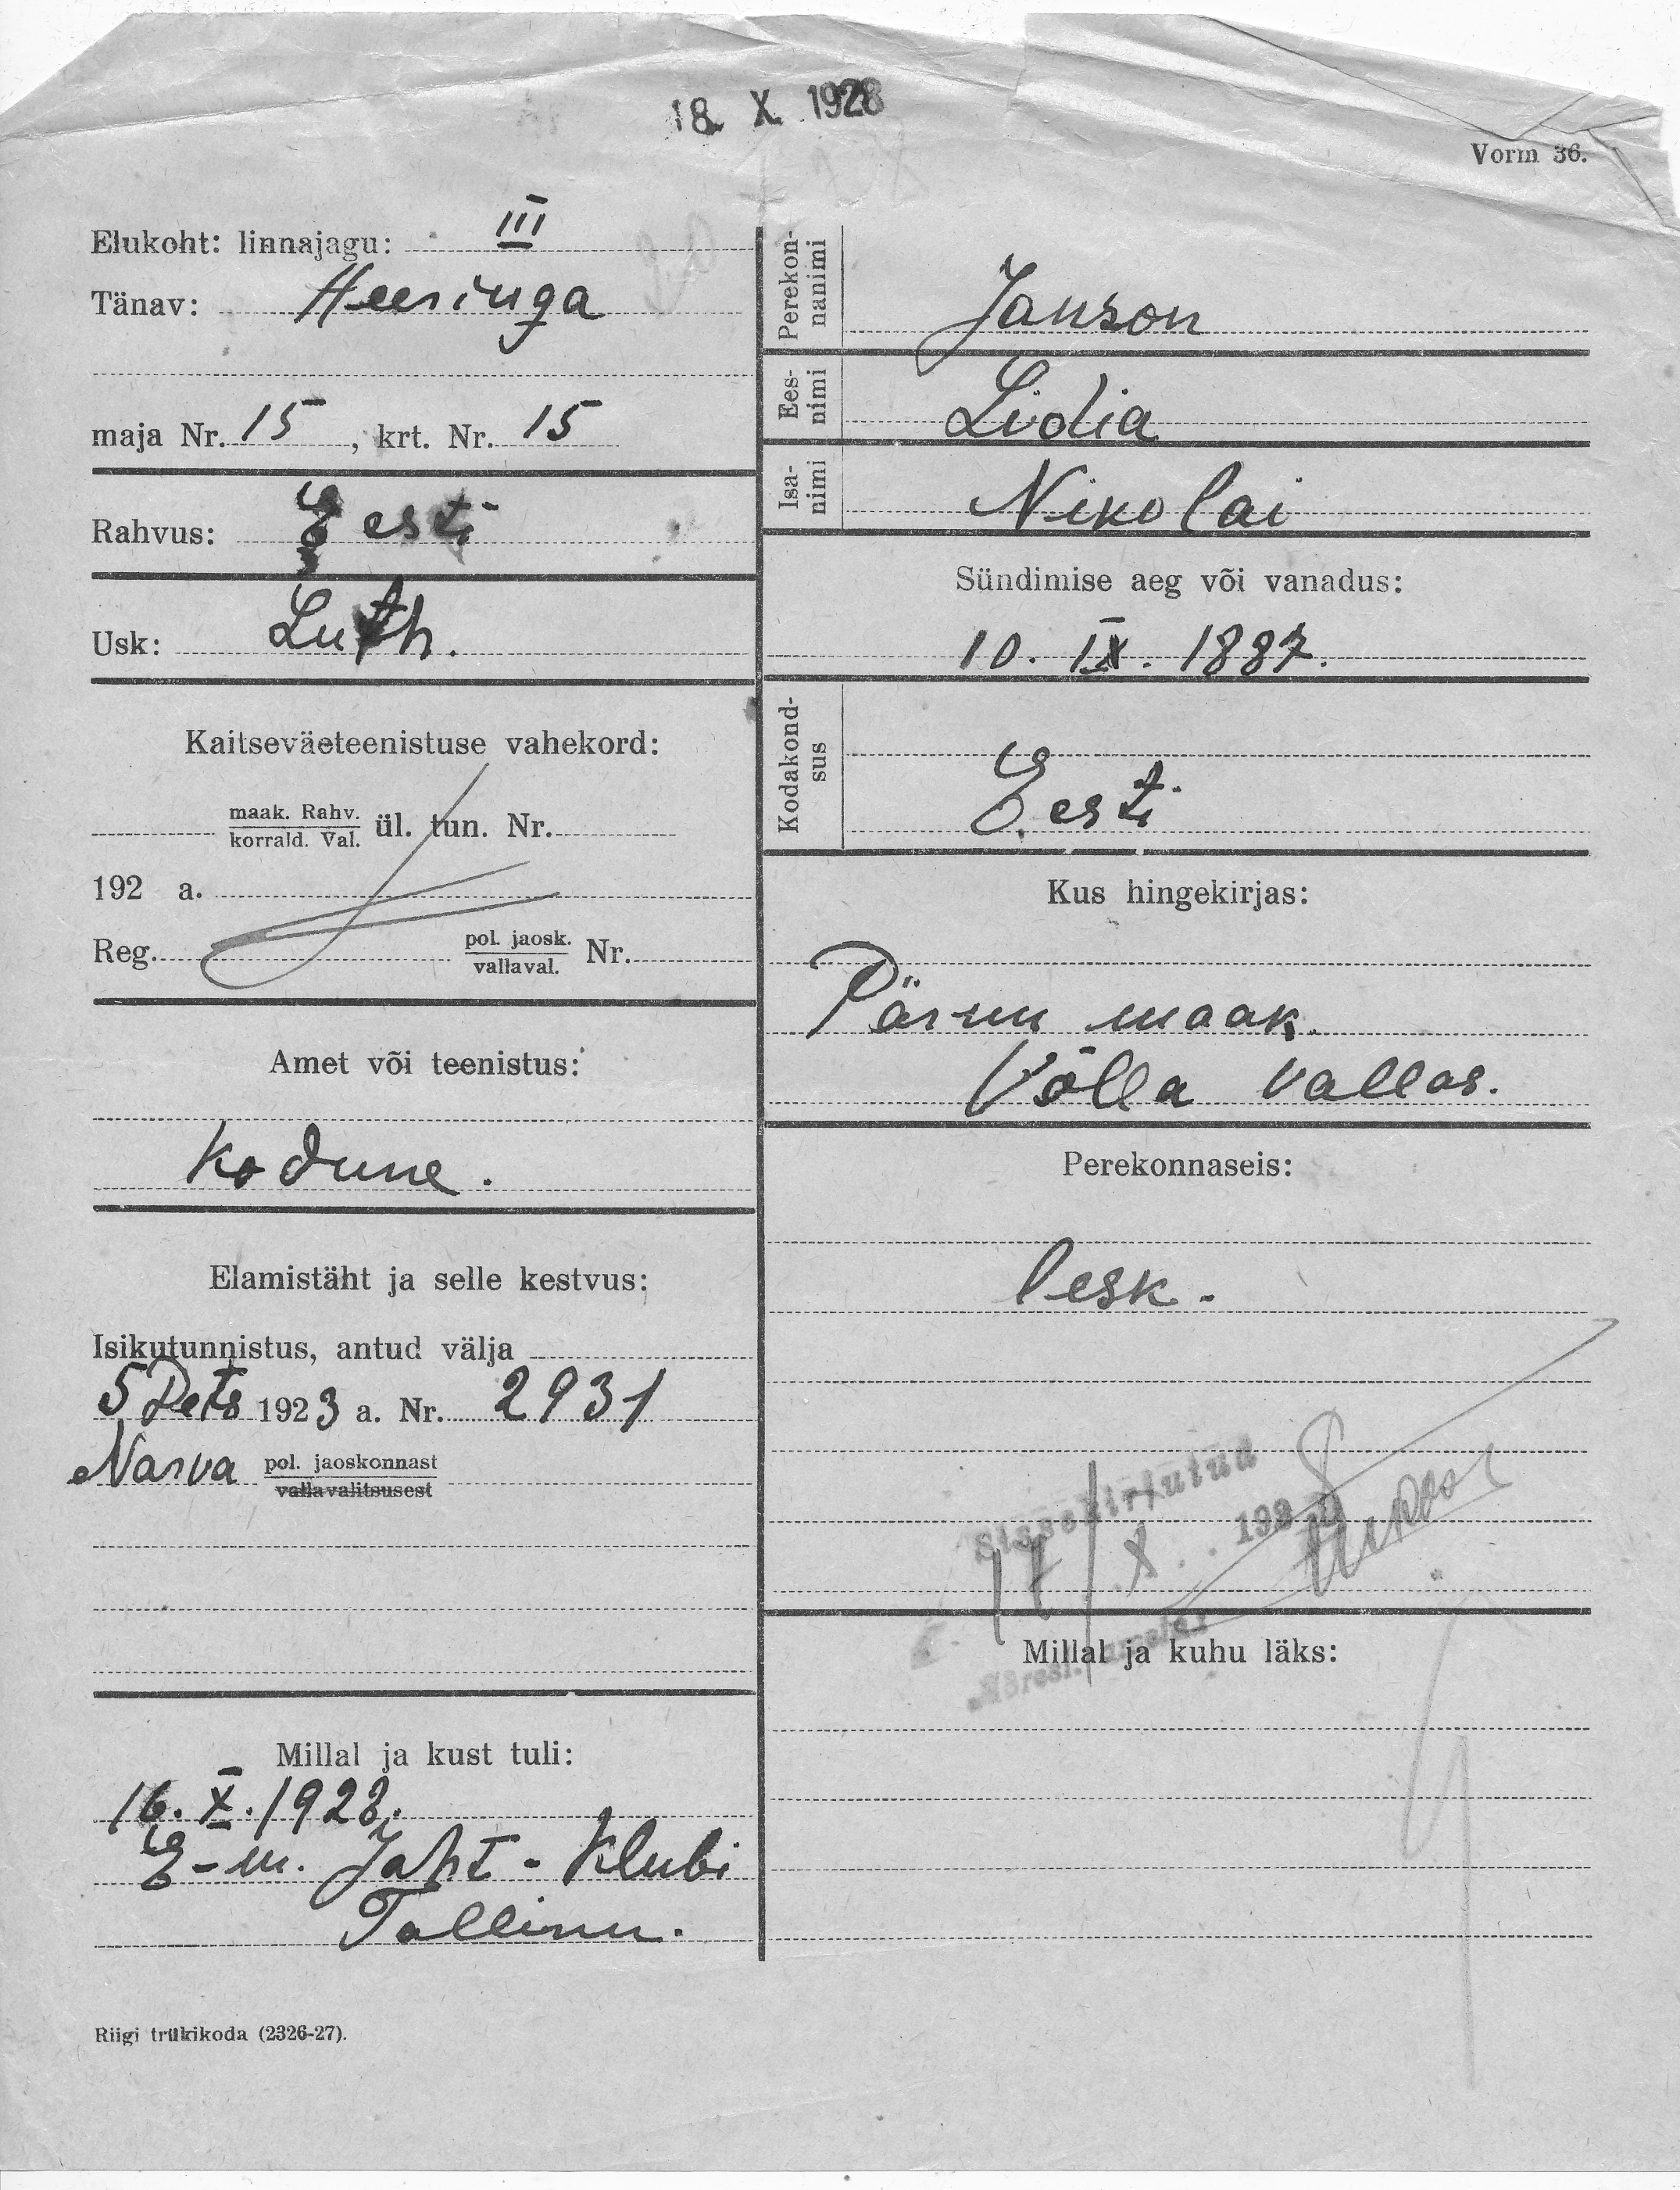 18. X. 1928
Vorm 36.
Elukoht: linnajagu: III
Tänav: Heeringa
maja Nr. 15, krt. Nr. 15
Rahvus: Eesti
Usk: Luth.
Kaitseväeteenistuse vahekord:
maak. Rahv.
korrald. Val. ül. tun. Nr.
192 a.
Reg. pol. jaosk. Nr.
vallaval.
Amet või teenistus:
Kodune.
Elamistäht ja selle kestvus:
Isikutunnistus, antud välja
5 Dets 1923 a. Nr. 2931
Narva pol. jaoskonnast
vallavalitsusest
Millal ja kust tuli:
16. X. 1928.
E-m. Jaht-Klubi
Tallinn.
Riigi trükikoda (2326-27).
Perekon-
nanimi
Janson
Ees-
nimi
Lidia
Isa-
nimi
Nikolai
Sündimise aeg või vanadus:
10. IX. 1887.
Kodakond-
sus
Eesti
Kus hingekirjas:
Pärnu maak.
Võlla vallas.
Perekonnaseis:
lesk.
Sissekirjutud
17/X 192
Millal ja kuhu läks: